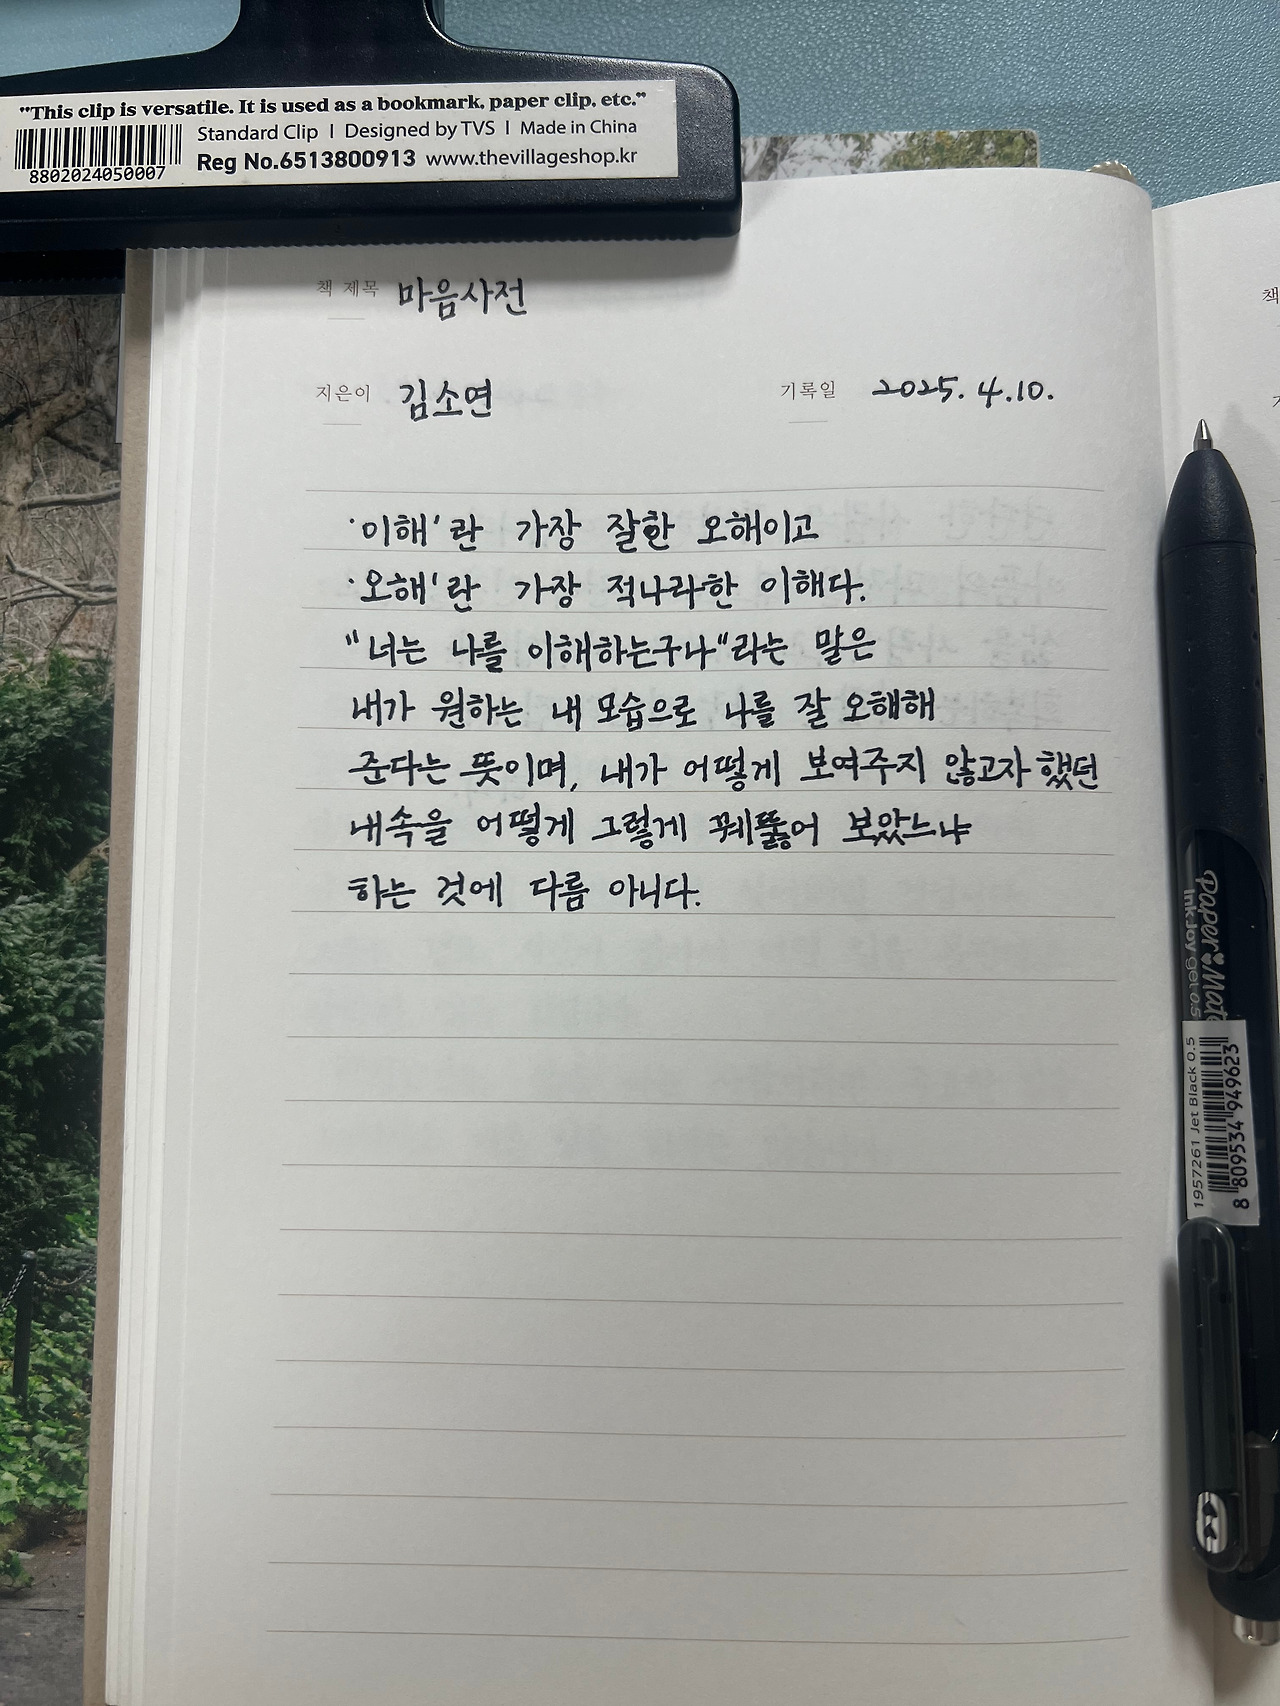 "This clip is versatile. It is used as a bookmark, paper clip, etc."
Standard Clip I Designed by TVS I Made in China
Reg No.6513800913 www.thevillageshop.kr
8802024050007
책 제목 마음사전
지은이 김소연 기록일 2025. 4.10.
'이해'란 가장 잘한 오해이고
'오해'란 가장 적나라한 이해다.
"너는 나를 이해하는구나"라는 말은
내가 원하는 내 모습으로 나를 잘 오해해
준다는 뜻이며, 내가 어떻게 보여주지 않고자 했던
내 속을 어떻게 그렇게 꿰뚫어 보았느냐
하는 것에 다름 아니다.
책
Paper Mate
InkJoy gel 0.5
1957261 Jet Black 0.5
8 809534 949623